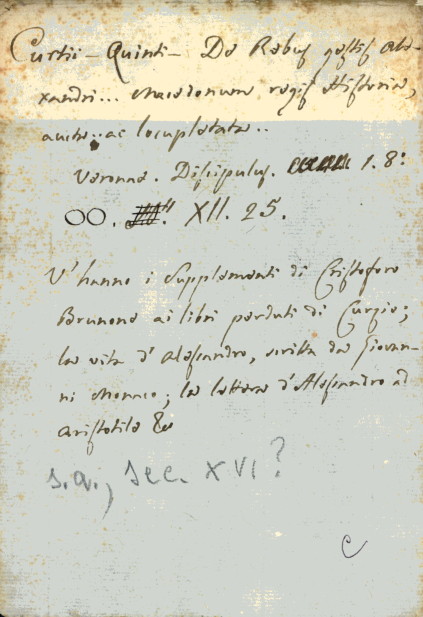 Curtii - Quinti - De Rebus gestis Ale-
xandri... Macedonum regis Historia,
aucta.. ac locupletata..
Veronae. Discipulus. 1. 8:
OO. XII. 25.
V'hanno i Supplementi di Cristoforo
Brunone ai libri perduti di Curzio;
la vita d'Alessandro, scritta da Giovan-
ni Monaco; la lettera d'Alessandro ad
Aristotile &c
s.a., sec. XVI?
C